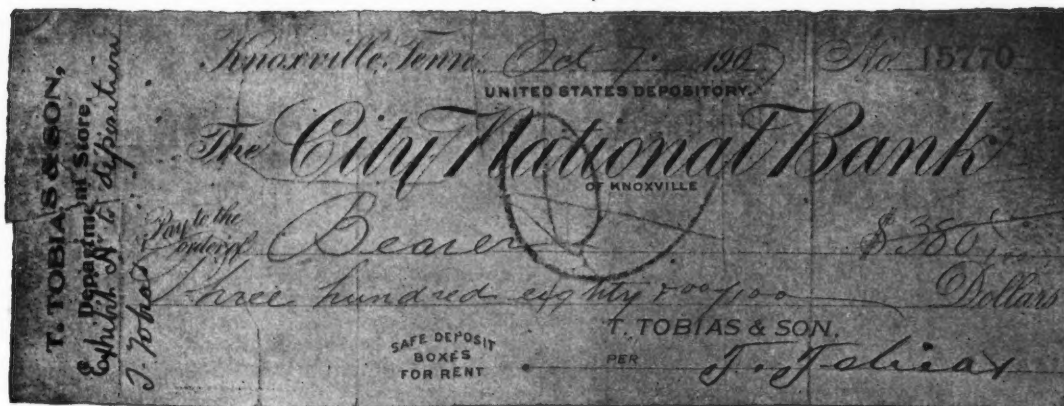 T. TOBIAS & SON,
Department Store,
Exhibit A to deposition
J. Tobias
Knoxville, Tenn. Oct 7 190 No. 15770
UNITED STATES DEPOSITORY.
The City National Bank
OF KNOXVILLE
Pay to the order of Bearer $380
Three hundred eighty & 00/100 Dollars
T. TOBIAS & SON.
SAFE DEPOSIT
BOXES
FOR RENT
PER T. Tobias